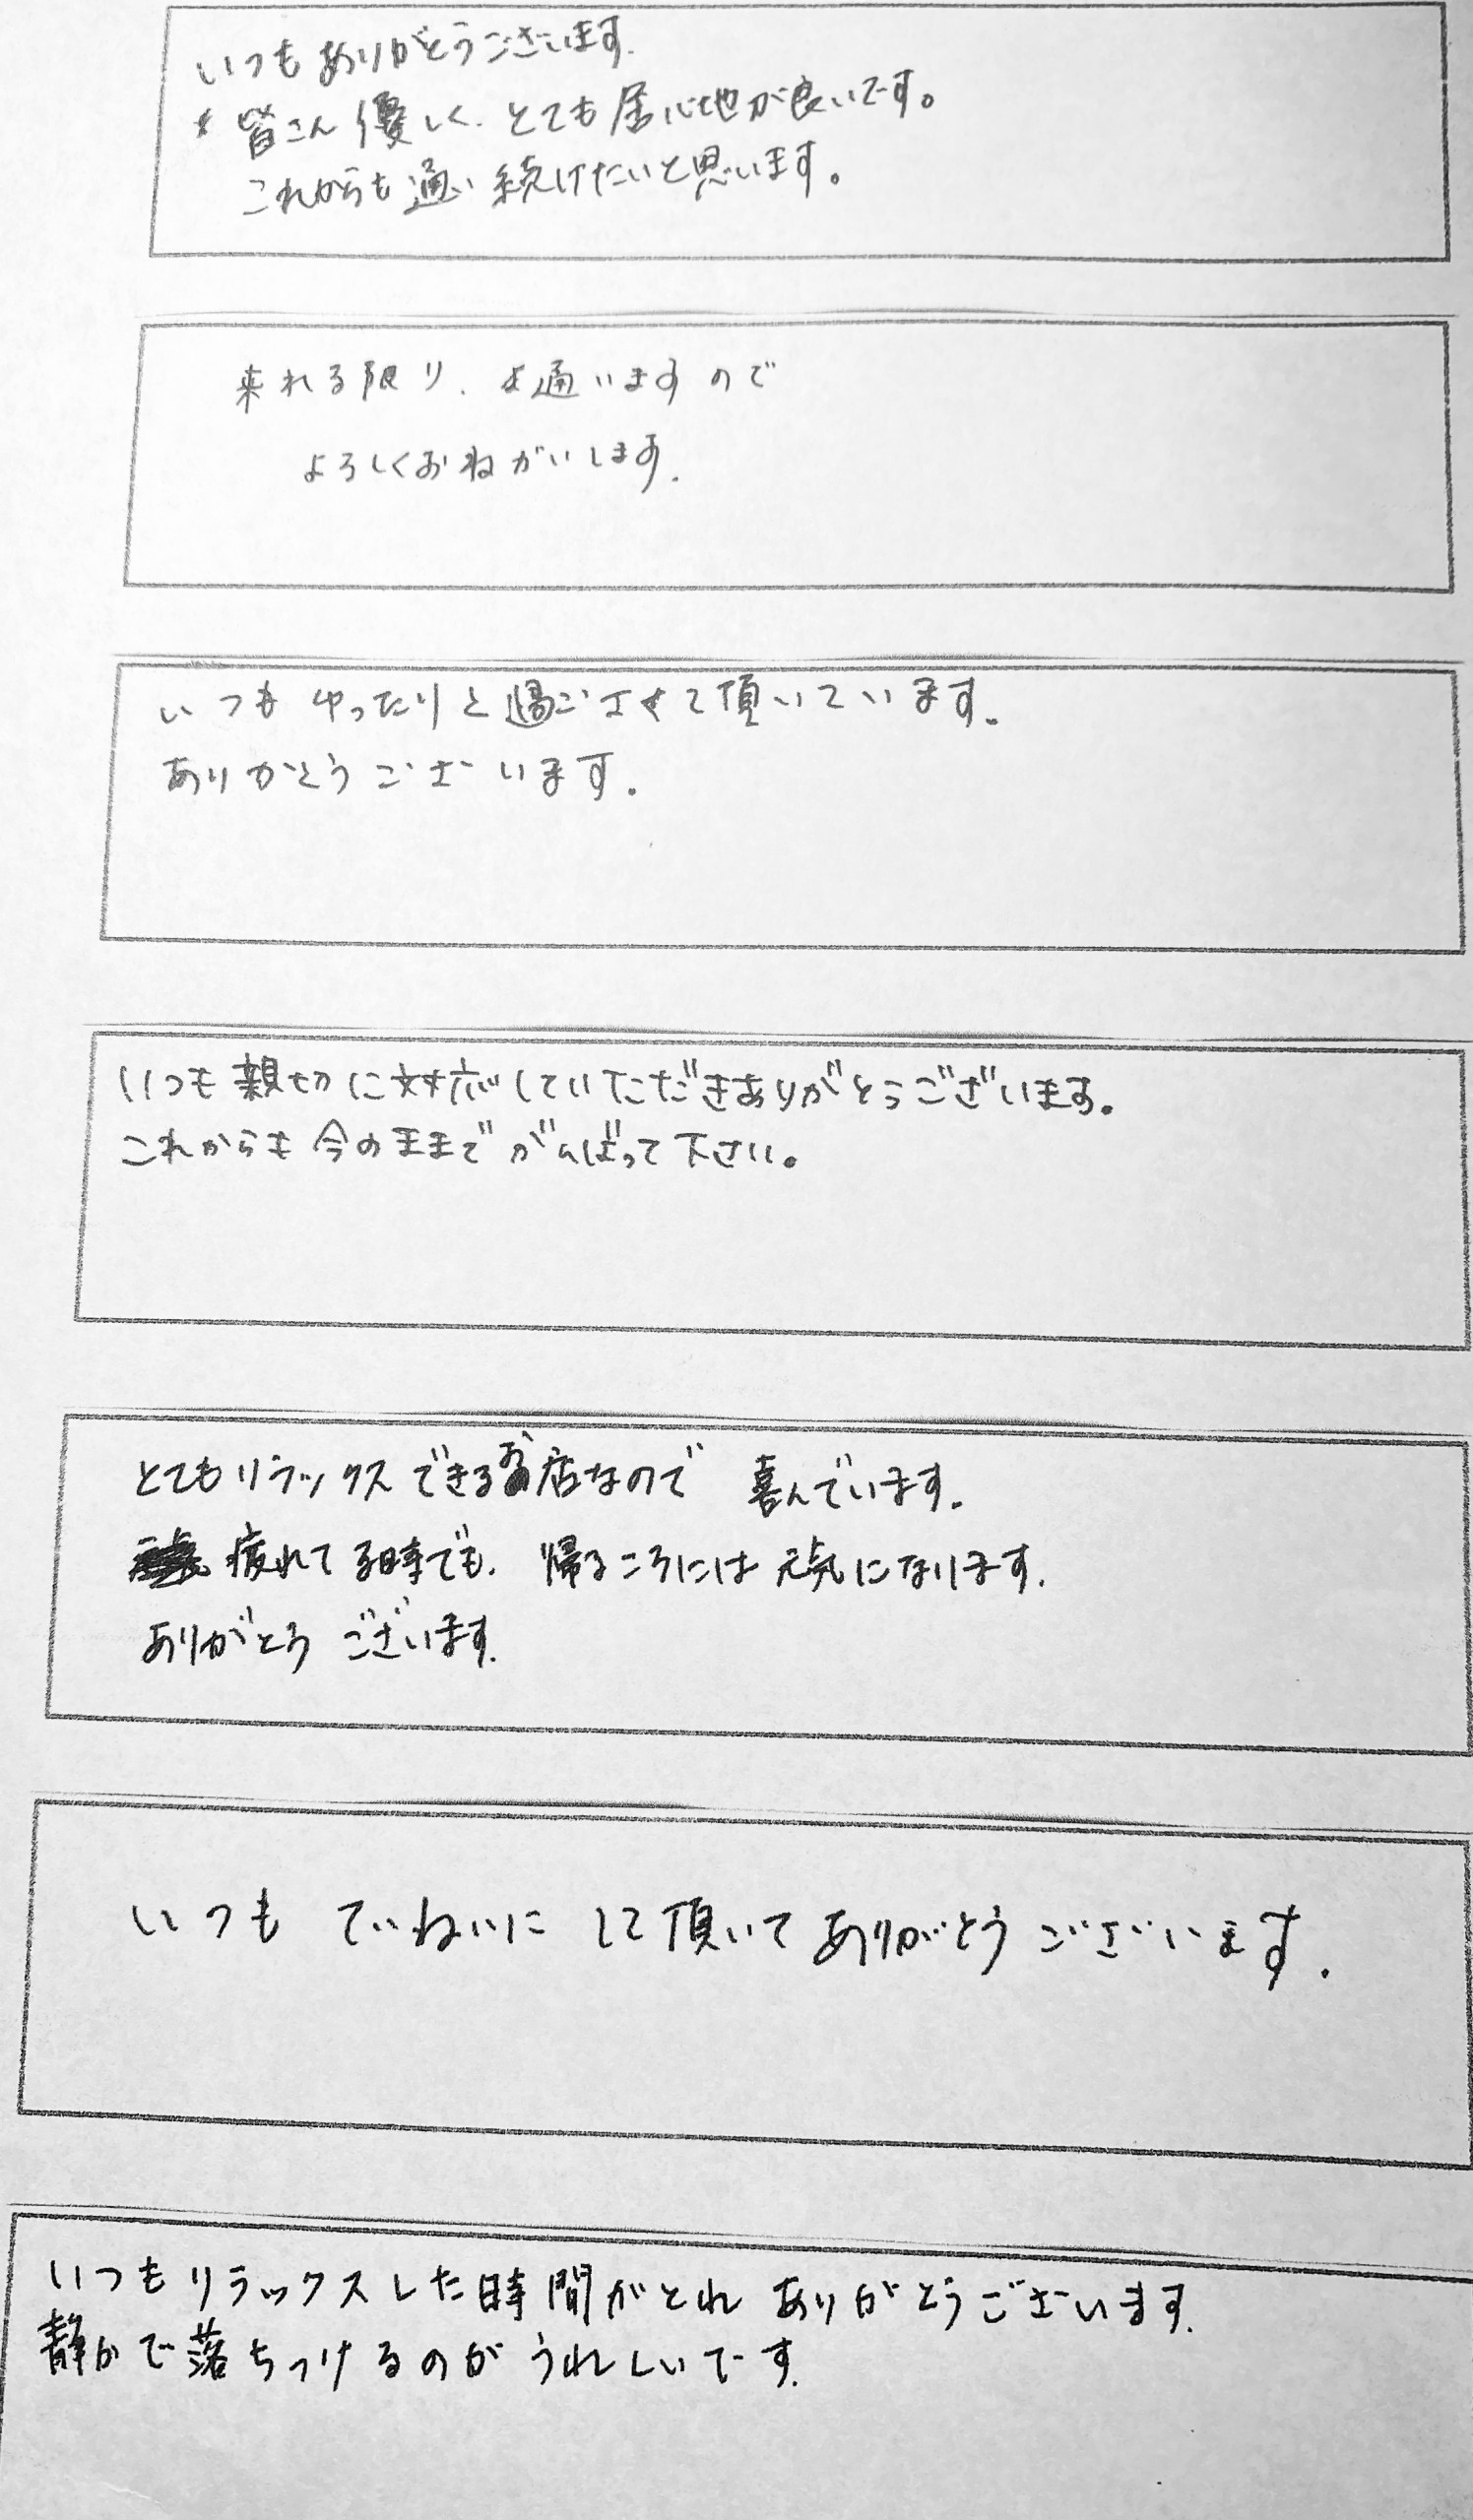 いつもありがとうございます.
* 皆さん優しく、とても居心地が良いです。
これからも通い続けたいと思います。
来れる限り、通いますので
よろしくおねがいします.
いつもゆったりと過ごさせて頂いています.
ありがとうございます.
いつも親切に対応していただきありがとうございます。
これからも今のままでがんばって下さい。
とてもリラックスできるお店なので 喜んでいます.
疲れてる時でも、帰るころには元気になります.
ありがとうございます.
いつも ていねいに して頂いて ありがとうございます.
いつもリラックスした時間がとれ ありがとうございます.
静かで落ちつけるのが うれしいです.